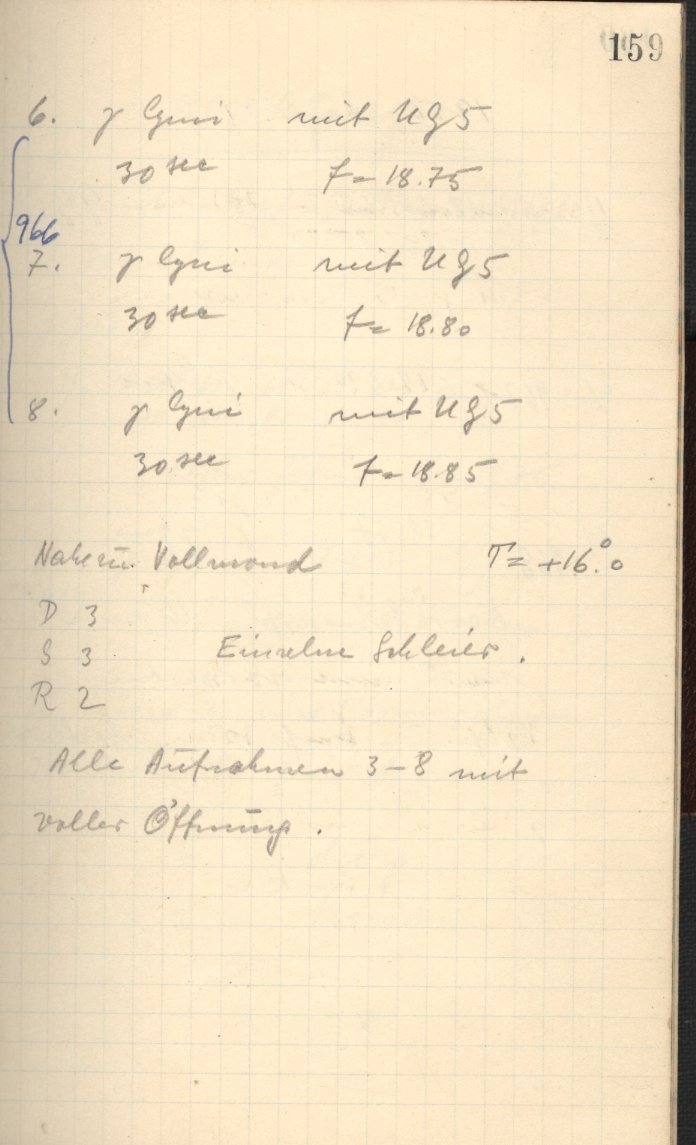 159
6. γ Cygni mit UG5
30 sec f = 18.75
966
7. γ Cygni mit UG5
30 sec f = 18.80
8. γ Cygni mit UG5
30 sec f = 18.85
Vollmond T = +16°.0
D 3
S 3 Einzelne Schleier.
R 2
Alle Aufnahmen 3-8 mit
voller Öffnung.